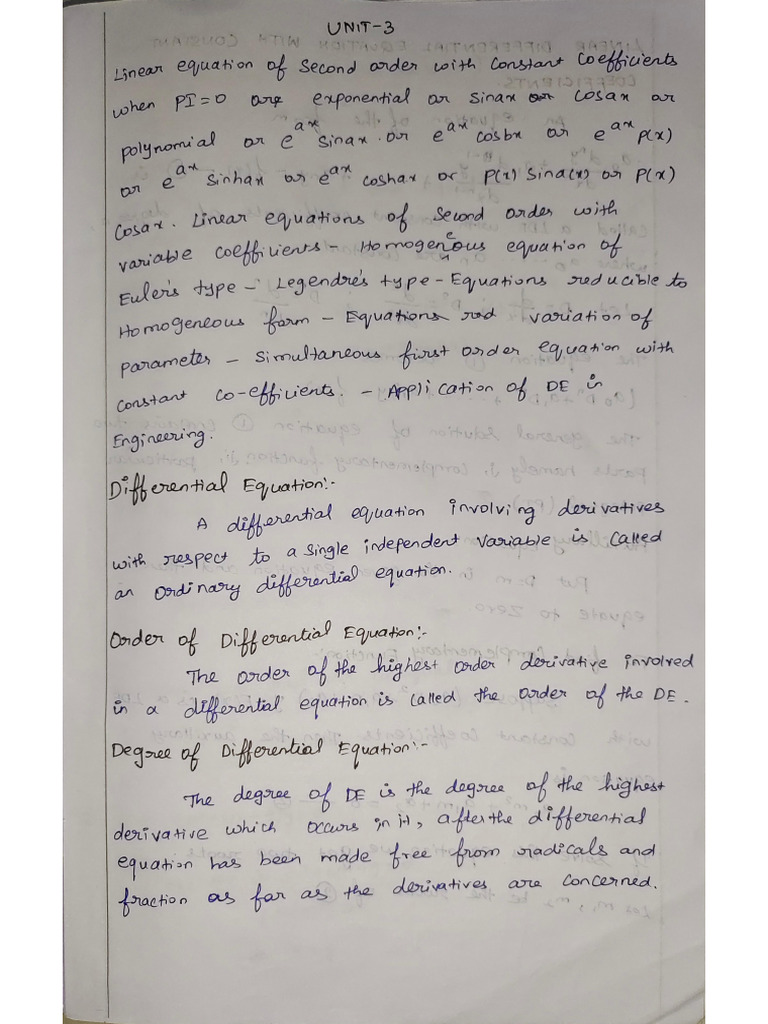 UNIT-3
Linear equation of Second order with Constant Coefficients
when PI=0 are exponential or sinax or cosax or
polynomial or e^ax sinax. or e^ax cosbx or e^ax p(x)
or e^ax sinhax or e^ax coshax or P(x) Sina(x) or P(x)
cosax. Linear equations of second order with
variable coefficients - Homogeneous equation of
Euler's type - Legendre's type - Equations reducible to
Homogeneous form - Equations red variation of
parameter - simultaneous first order equation with
constant co-efficients. - Application of DE in
Engineering.
Differential Equation:-
A differential equation involving derivatives
with respect to a single independent variable is called
an ordinary differential equation.
Order of Differential Equation:-
The order of the highest order derivative involved
in a differential equation is called the order of the DE.
Degree of Differential Equation:-
The degree of DE is the degree of the highest
derivative which occurs in it, after the differential
equation has been made free from radicals and
fraction as far as the derivatives are concerned.